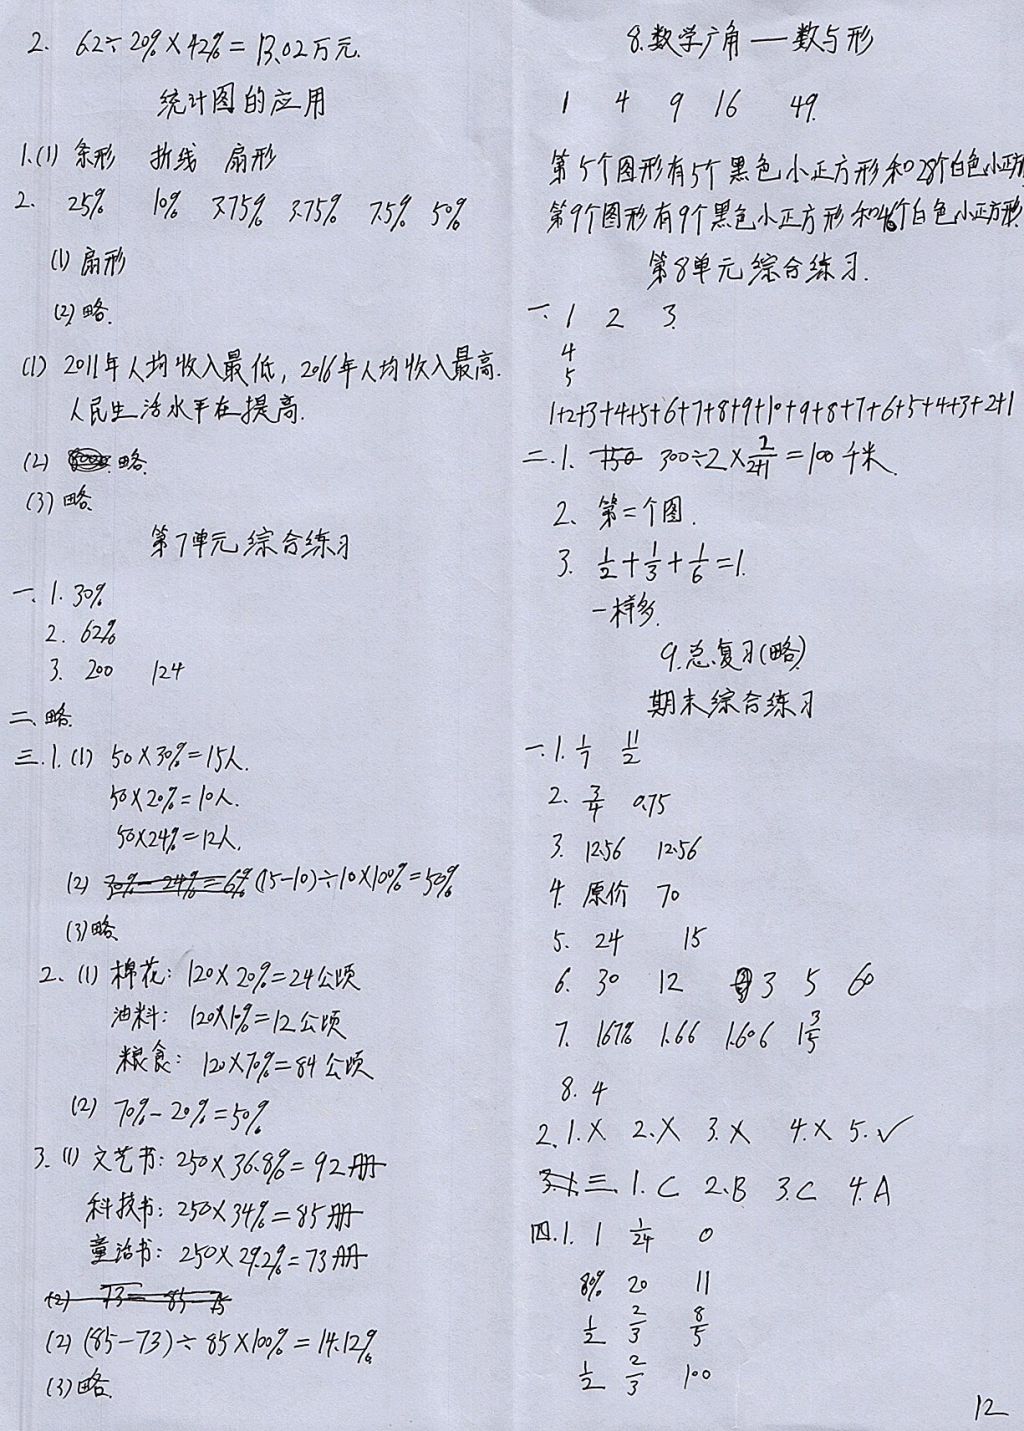 2. 6.2÷20%×42%=13.02万元.
统计图的应用
1.(1) 条形 折线 扇形
2. 25% 10% 3.75% 3.75% 7.5% 50%
(1) 扇形
(2) 略.
(1) 2011年人均收入最低, 2016年人均收入最高.
人民生活水平在提高.
(2) 略.
(3) 略.
第7单元综合练习
一. 1. 30%
2. 62%
3. 200 124
二. 略.
三. 1. (1) 50×30%=15人.
50×20%=10人.
50×24%=12人.
(2) 30%-24%=6% (15-10)÷10×100%=50%
(3) 略.
2. (1) 棉花: 120×20%=24公顷
油料: 120×10%=12公顷
粮食: 120×70%=84公顷
(2) 70%-20%=50%
3. (1) 文艺书: 250×36.8%=92册
科技书: 250×34%=85册
童话书: 250×29.2%=73册
(2) 73 85
(2) (85-73)÷85×100%=14.12%
(3) 略.
8.数学广角—数与形
1 4 9 16 49.
第5个图形有5个黑色小正方形和28个白色小正方
第9个图形有9个黑色小正方形和个白色小正方形.
第8单元综合练习.
一. 1 2 3.
4
5
1+2+3+4+5+6+7+8+9+10+9+8+7+6+5+4+3+2+1
二. 1. 150 300÷2×2/(2+1)=100千米.
2. 第二个图.
3. 1/2+1/3+1/6=1.
一样多.
9.总复习(略)
期末综合练习
一. 1. 1/7 11/2
2. 3/4 0.75
3. 12.56 12.56
4. 原价 70
5. 24 15
6. 30 12 3 5 60
7. 167% 1.66 1.606 1 3/5
8. 4
2. 1.× 2.× 3.× 4.× 5.✓
三. 1. C 2.B 3.C 4.A
四. 1. 1 1/24 0
80% 20 11
1/2 2/3 8/5
1/2 2/3 100
12